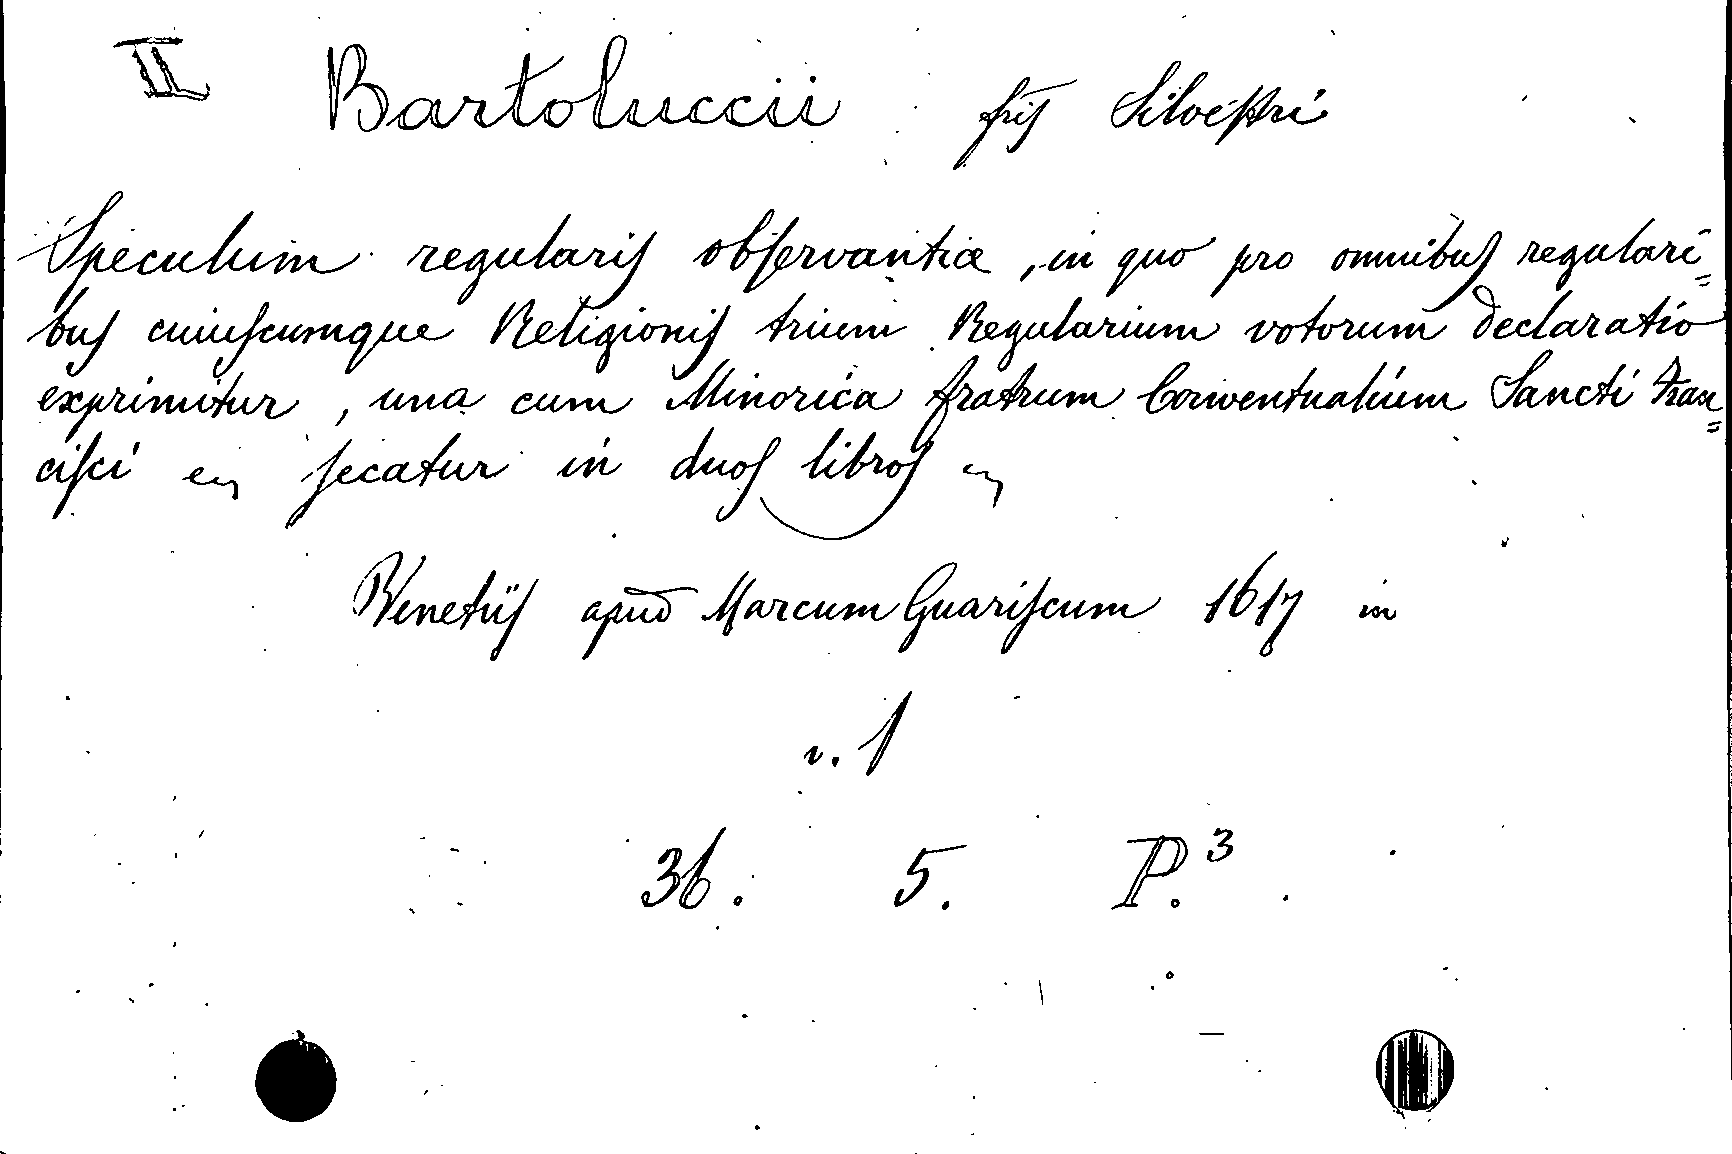 II Bartoluccii fris Silvestri
Speculum regularis observantiæ, in quo pro omnibus regulari=
bus cuiuscumque Religionis trium Regularium votorum declaratio
exprimitur, una cum Minorica fratrum Conventualium Sancti Fran=
cisci secatur in duos libros
Venetiis apud Marcum Guariscum 1617 in
v. 1
36. 5. P.3